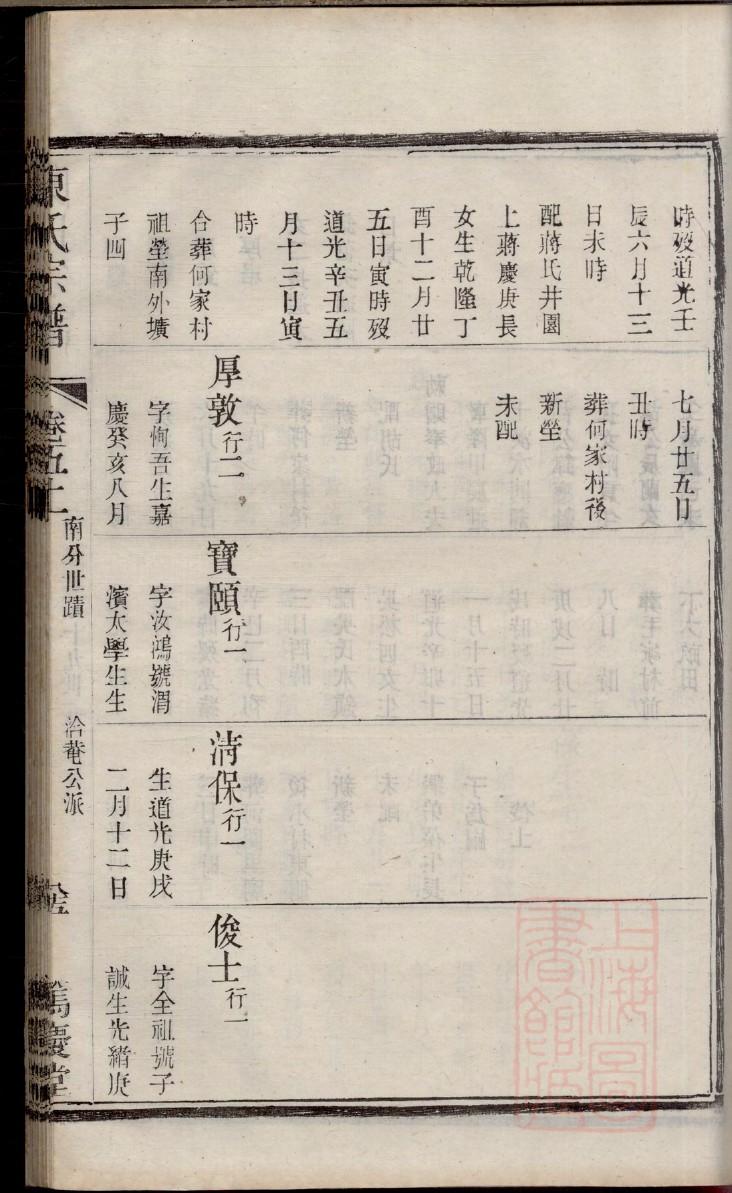 時歿道光壬
辰六月十三
日未時
配蔣氏井園
上蔣慶庚長
女生乾隆丁
酉十二月廿
五日寅時歿
道光辛丑五
月十三日寅
時
合葬何家村
祖塋南外壙
子四
七月廿五日
丑時
葬何家村後
新塋
未配
厚敦行二
字恂吾生嘉
慶癸亥八月
寶頤行一
字汝鴻號渭
濱太學生生
清保行一
生道光庚戌
二月十二日
俊士行一
字全祖號子
誠生光緒庚
陳氏宗譜
卷五上
南分世蹟
洽菴公派
篤慶堂
上海圖
書館藏